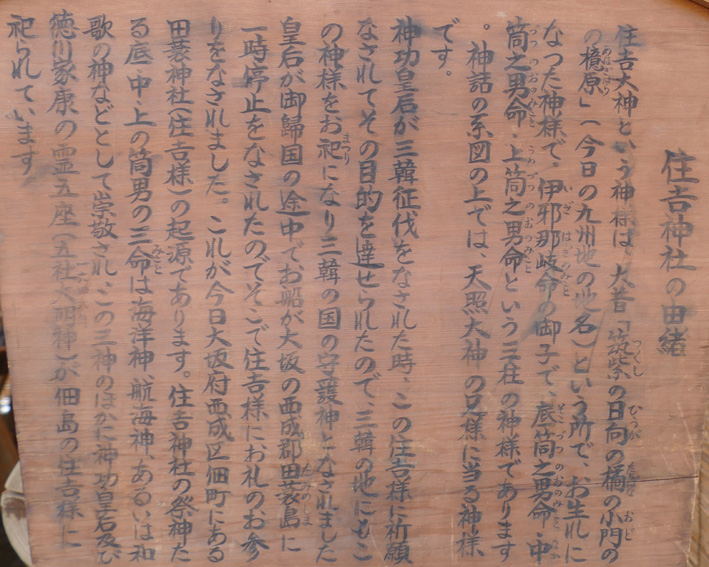 住吉神社の由緒
住吉大神という神様は、大昔「筑紫の日向の橘の小門の
の檍原」（今日の九州地の地名）という所で、お生れに
なった神様で、伊邪那岐命の御子で、底筒之男命、中
筒之男命、上筒之男命という三柱の神様であります
。神話の系図の上では、天照大神の兄様に当る神様
です。
神功皇后が三韓征伐をなされた時、この住吉様に祈願
なされてその目的を達せられたので、三韓の地にもこ
の神様をお祀になり三韓の国の守護神となされました
皇后が御歸国の途中でお船が大坂の西成郡田蓑島に
一時停止をなされたのでそこで住吉様にお礼のお参
りをなされました。これが今日大坂府西成区佃町にある
田蓑神社（住吉様）の起源であります。住吉神社の祭神た
る底・中・上の筒男の三命は海洋神、航海神、あるいは和
歌の神などとして崇敬され、この三神のほかに神功皇后及び
徳川家康の霊五座（五社大明神）が佃島の住吉様に
祀られています